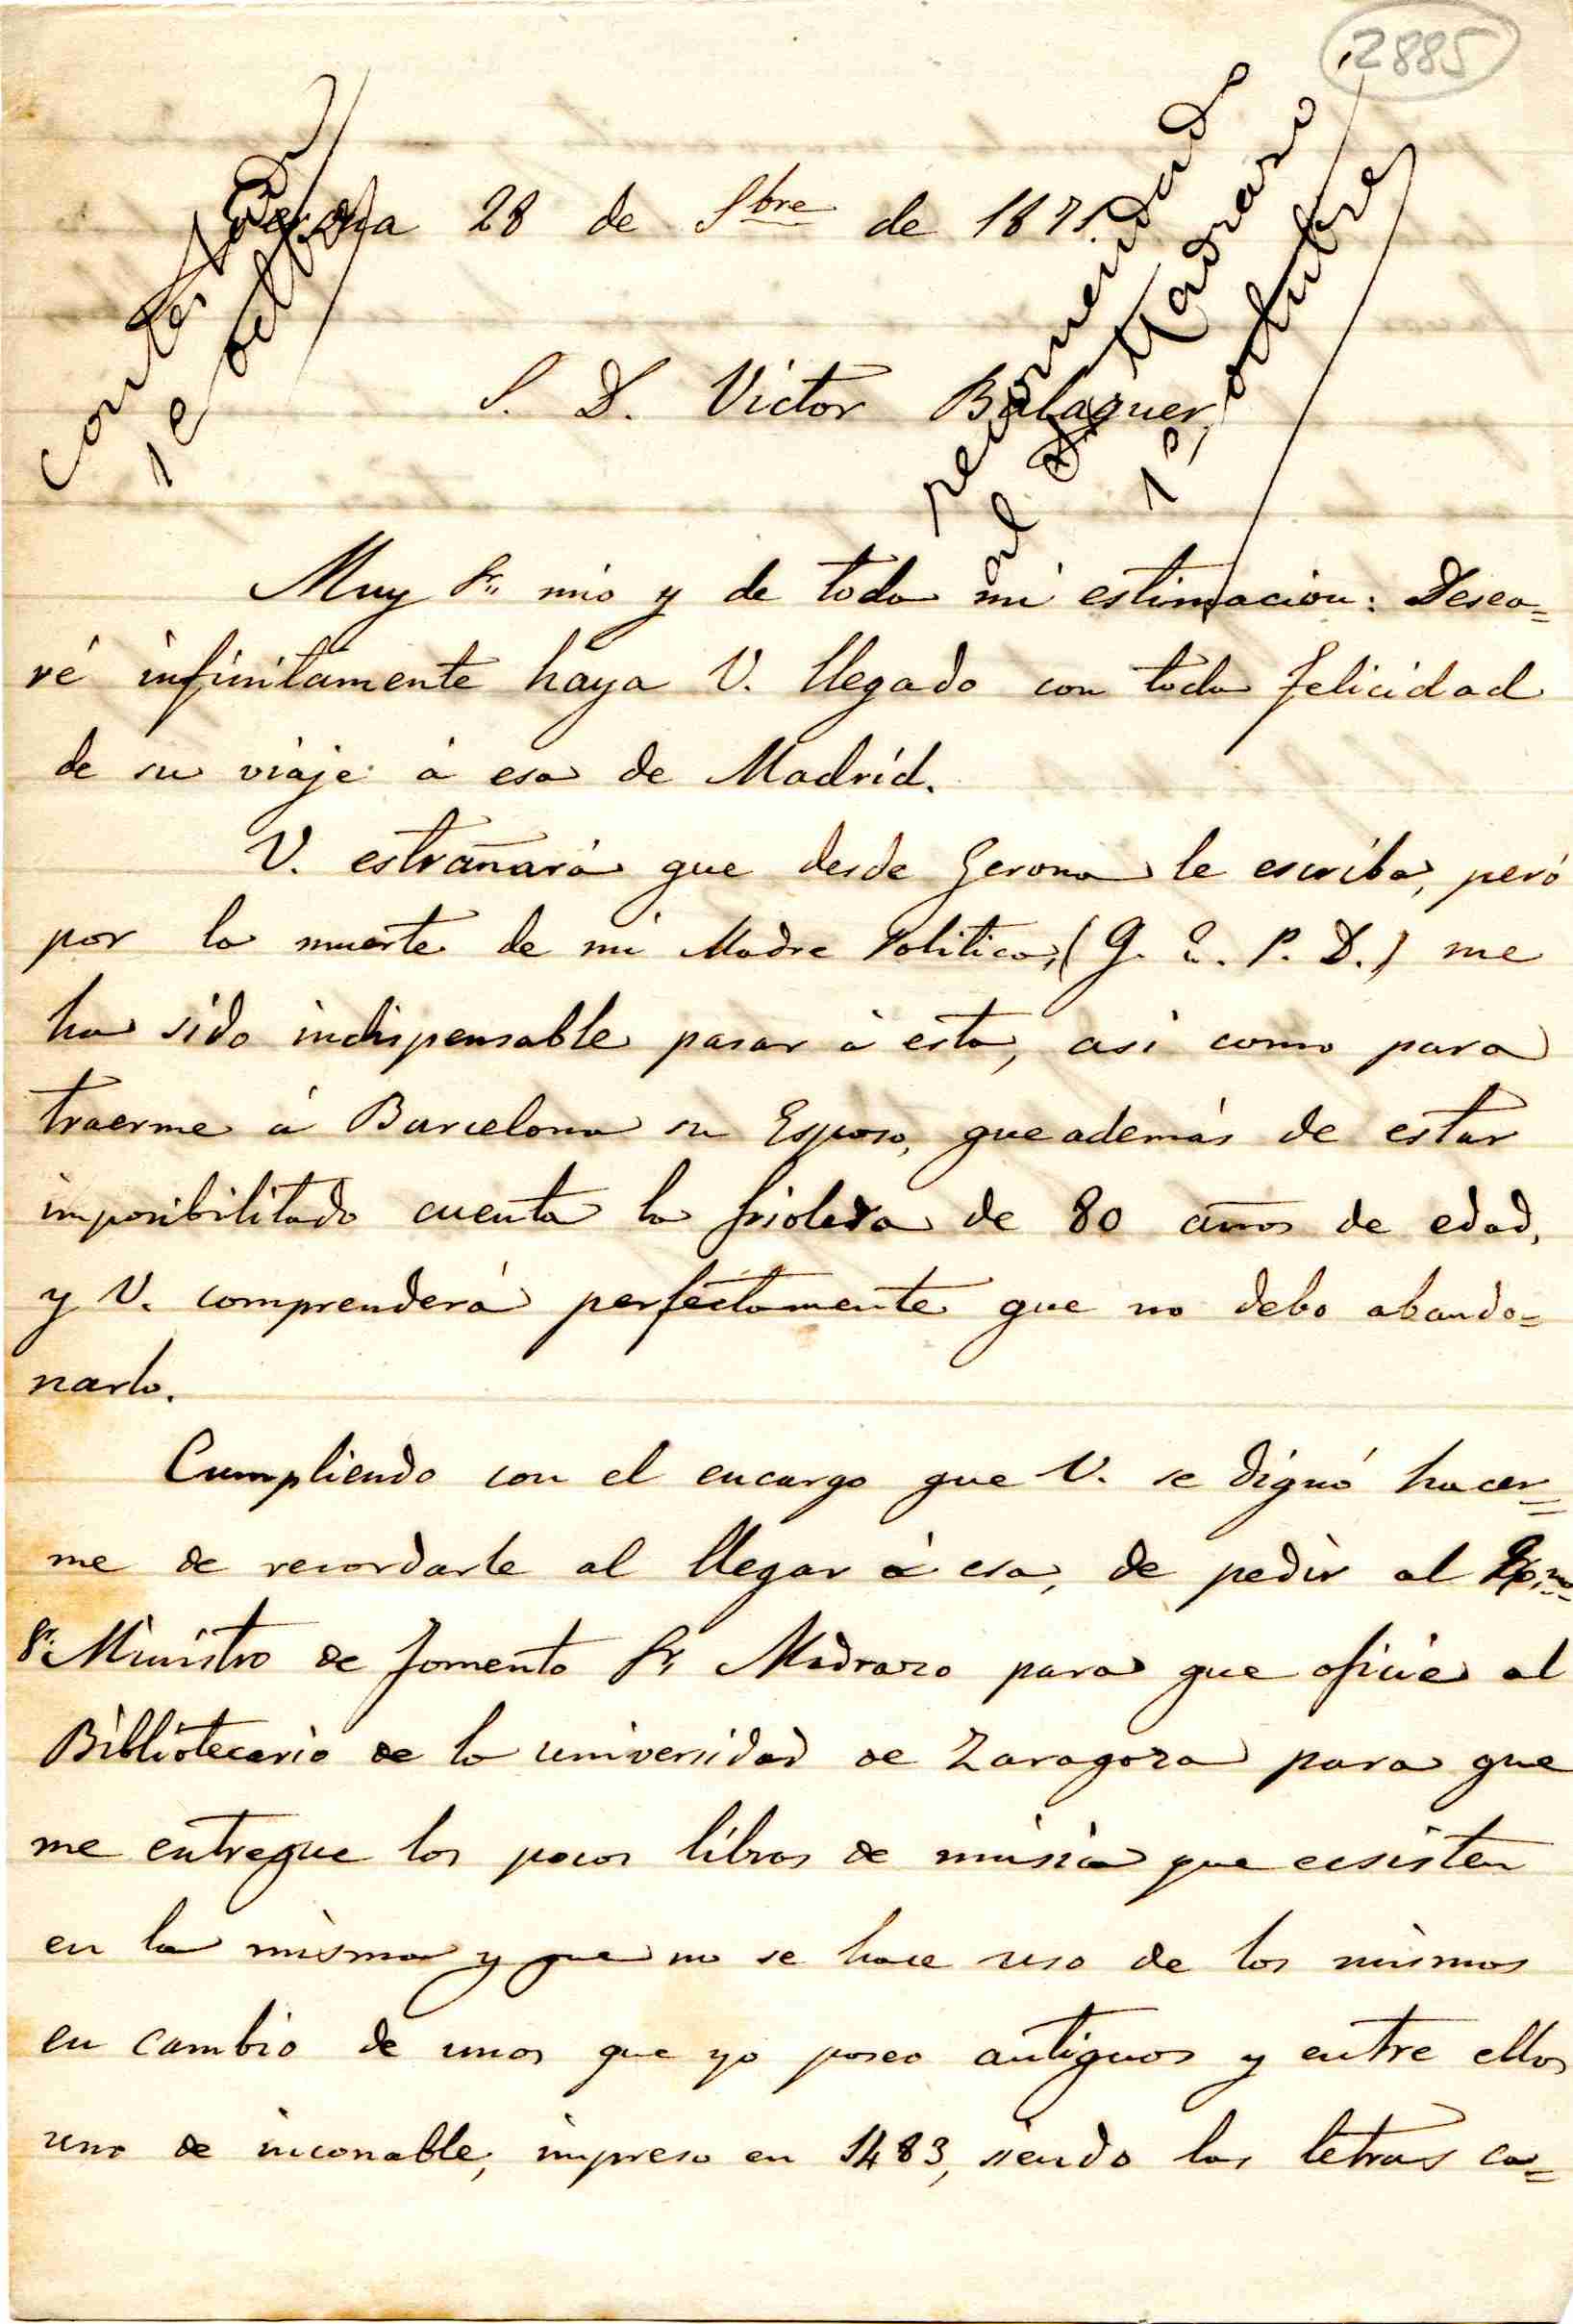 2885
contestada
1º octbre
recomendado
al Sr. Madrazo
1º, octubre
Gerona 28 de Sbre de 1871.
S. D. Victor Balaguer,
Muy Sr. mio y de toda mi estimacion: Desea=
ré infinitamente haya V. llegado con toda felicidad
de su viaje á esa de Madrid.
V. estrañará que desde Gerona le escriba, peró
por la muerte de mi Madre Politica, (Q. E. P. D.) me
ha sido indispensable pasar á esta, asi como para
traerme á Barcelona su Esposo, que además de estar
imposibilitado cuenta la friolera de 80 años de edad,
y V. comprenderá perfectamente que no debo abando=
narlo.
Cumpliendo con el encargo que V. se dignó hacer=
me de recordarle al llegar á esa, de pedir al Exmo
Sr. Ministro de Fomento Sr. Madrazo para que oficie al
Bibliotecario de la universidad de Zaragoza para que
me entregue los pocos libros de música que ecsisten
en la misma y que no se hace uso de los mismos
en cambio de unos que yo poseo antiguos y entre ellos
uno de inconable, impreso en 1483, siendo las letras ca=